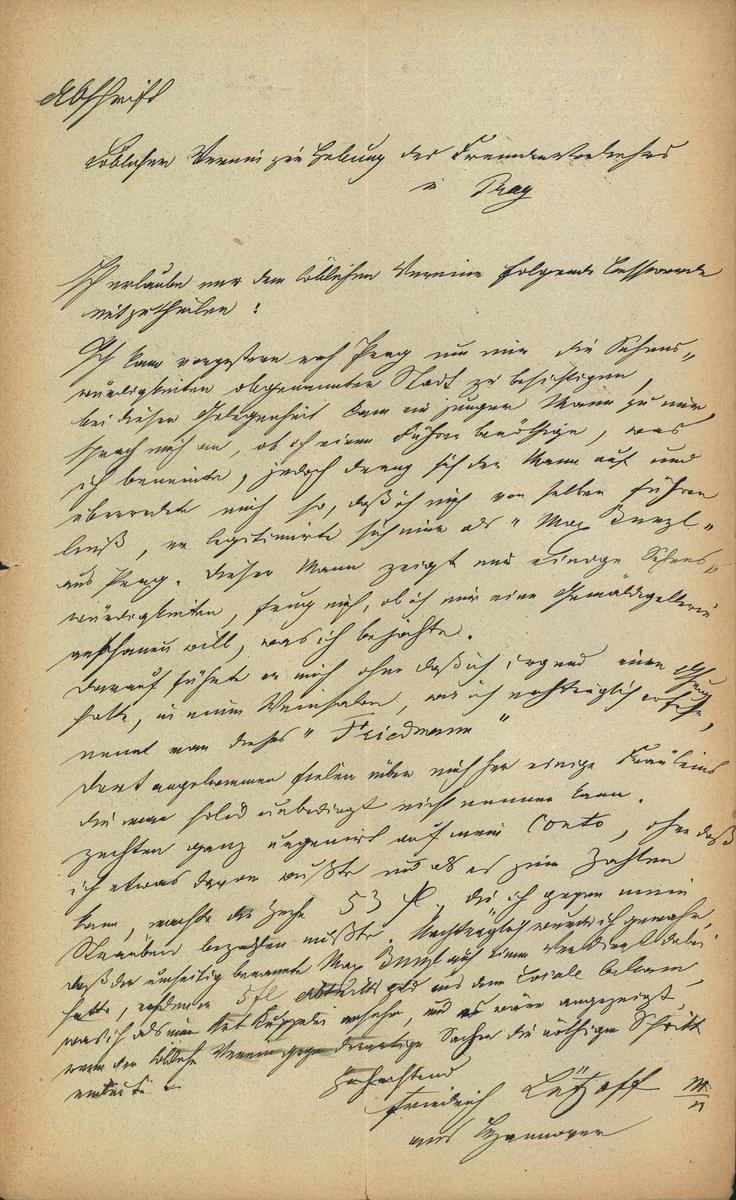 Abschrift
Löblicher Verein zur Hebung des Fremdenverkehrs
in Prag
Ich erlaube mir dem löblichen Vereine folgende Beschwerde
mitzutheilen :
Ich kam vorgestern nach Prag um mir die Sehens„
würdigkeiten obgenannter Stadt zu besichtigen,
bei dieser Gelegenheit kam ein junger Mann zu mir,
sprach mich an, ob ich einen Führer benöthige, was
ich verneinte, jedoch drang sich der Mann auf und
überredete mich so, daß ich mich von selben führen
ließ, er legitimirte sich mir als „ Max "
aus Prag. Dieser Mann zeigt mir einige Sehens„
würdigkeiten, frug mich, ob ich mir eine Gemäldegallerie
anschauen will, was ich bejahte.
Darauf führte er mich ohne daß ich irgend eine Ahnung
hatte, in einen Weinsalon, wie ich nachträglich erfuhr,
nennt man dieses „ Friedmann "
Dort angekommen fielen über mich her einige Fräuleins
die man solid unbedingt nicht nennen kann.
zechten ganz ungenirt auf mein Conto, ohne daß
ich etwas davon wußte und als es zum Zahlen
kam, machte die Zeche 53 fl, die ich gegen mein
Sträuben bezahlen mußte. Nachträglich wurde ich gewahr,
daß der Max auch einen Verdienst dabei
hatte, indem er 5 fl aus dem Locale bekam,
was ich als eine Art Kuppelei ansehe, und es wäre angezeigt,
wenn der löbliche Verein gegen derartige Sachen die nöthigen Schritt
einleite
Hochachtend
Friedrich Lützoff
aus Hannover